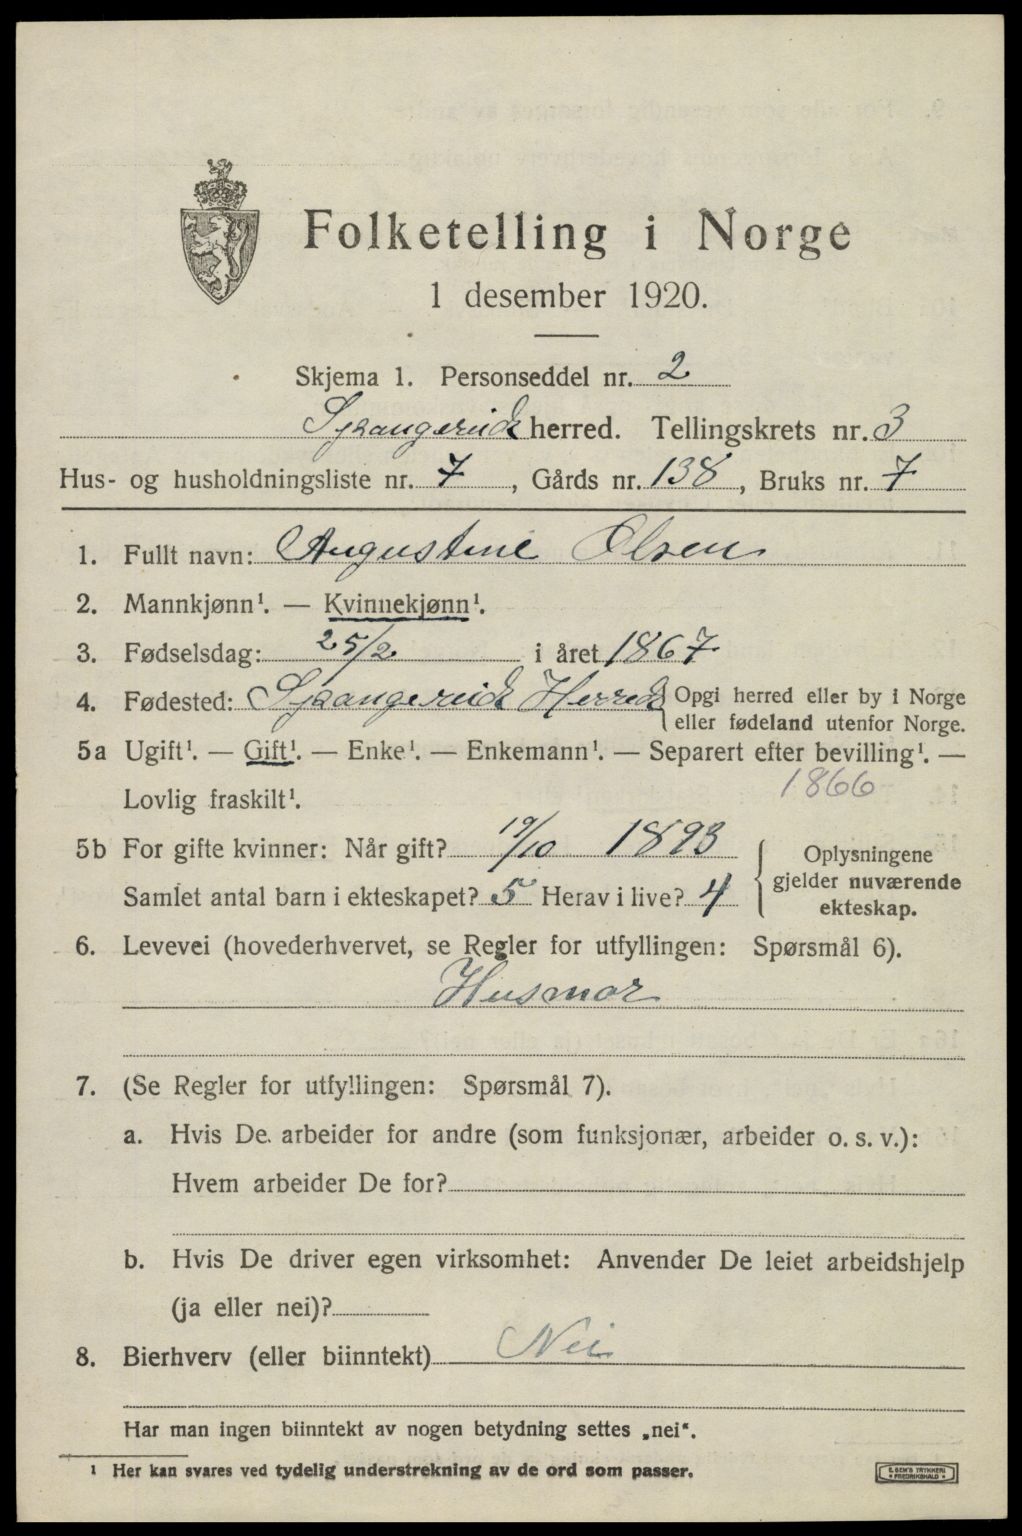 Folketelling i Norge
1 desember 1920.
Skjema 1. Personseddel nr. 2
Spangereid herred. Tellingskrets nr. 3
Hus- og husholdningsliste nr. 7, Gårds nr. 138, Bruks nr. 7
1. Fullt navn: Augustine Olsen
2. Mannkjønn¹. — Kvinnekjønn¹.
3. Fødselsdag: 25/2 i året 1867
4. Fødested: Spangereid Herred { Opgi herred eller by i Norge
eller fødeland utenfor Norge.
5a Ugift¹. — Gift¹. — Enke¹. — Enkemann¹. — Separert efter bevilling¹. —
Lovlig fraskilt¹. 1866
5b For gifte kvinner: Når gift? 19/10 1893
Samlet antal barn i ekteskapet? 5 Herav i live? 4
{ Oplysningene
gjelder nuværende
ekteskap.
6. Levevei (hovederhvervet, se Regler for utfyllingen: Spørsmål 6).
Husmor
7. (Se Regler for utfyllingen: Spørsmål 7).
a. Hvis De arbeider for andre (som funksjonær, arbeider o. s. v.):
Hvem arbeider De for?
b. Hvis De driver egen virksomhet: Anvender De leiet arbeidshjelp
(ja eller nei)?
8. Bierhverv (eller biinntekt) Nei
Har man ingen biinntekt av nogen betydning settes „nei“.
¹ Her kan svares ved tydelig understrekning av de ord som passer.
E. SEM'S TRYKKERI
FREDRIKSHALD